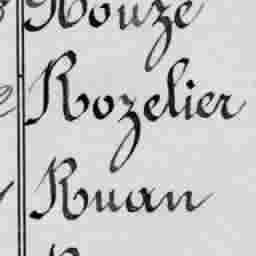 Rouzé
Rozelier
Ruan